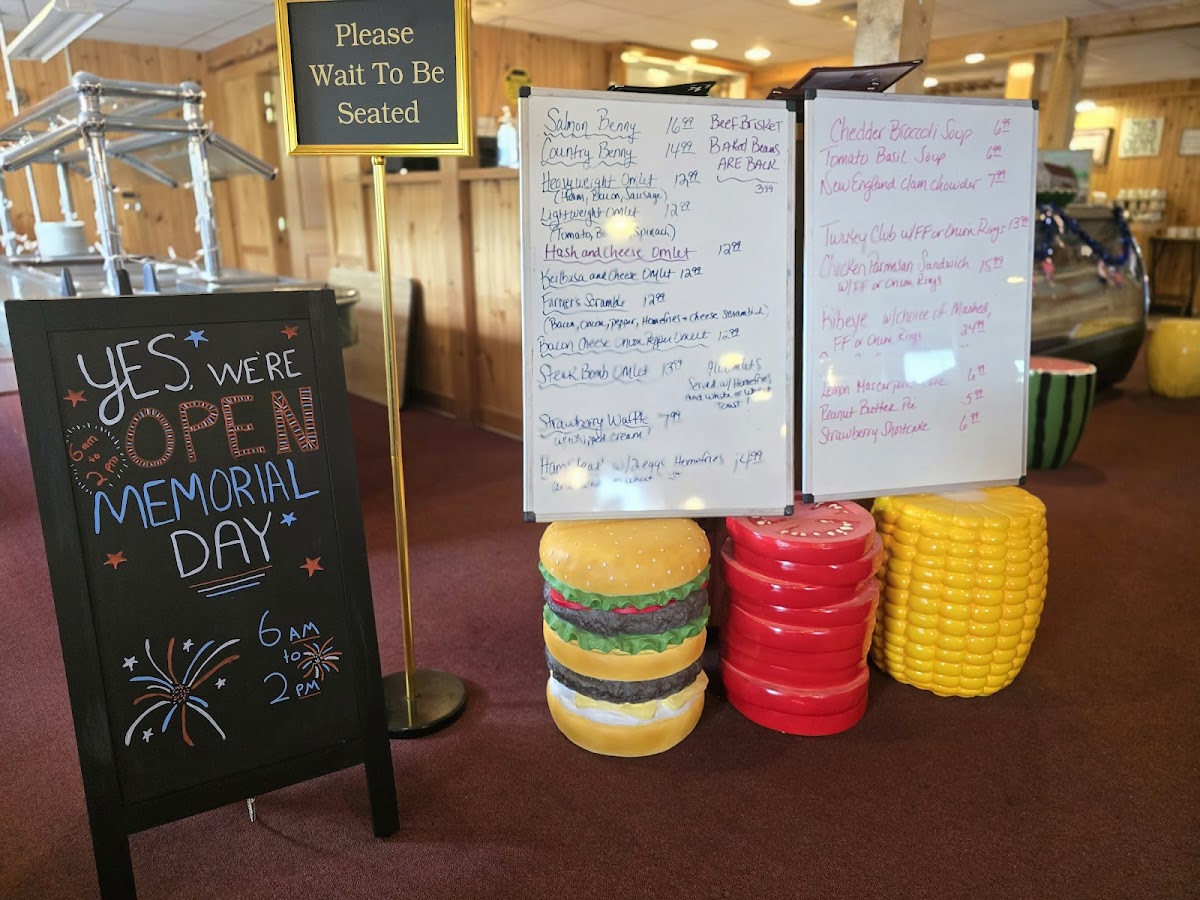 Please
Wait To Be
Seated
YES, WE'RE
OPEN
6am
to
2pm
MEMORIAL
DAY
6 AM
to
2 PM
Salmon Benny 16.99
Country Benny 14.99
Heavyweight Omlet 12.99
(Ham, Bacon, Sausage)
Lightweight Omlet 12.99
(Tomato, Spinach)
Hash and Cheese Omlet 12.99
Keilbasa and Cheese Omlet 12.99
Farmers Scramble 12.99
(Bacon, Onion, pepper, Homefries + Cheese Scrambled)
Bacon Cheese Onion Pepper Omlett 12.99
Steak Bomb Omlet 13.99
All omlets
Served w/ Homefries
and White or Wheat
Toast!
Strawberry Waffle 7.99
w/ whipped cream!
Ham Steak w/ 2 eggs Homefries 14.99
BEEF BRISKET
BAKED BEANS
ARE BACK
3.99
Chedder Broccoli Soup 6.99
Tomato Basil Soup 6.99
New England clam chowder 7.99
Turkey Club w/FF or Onion Rings 13.99
Chicken Parmesan Sandwich 15.99
w/ FF or Onion Rings
Ribeye w/ choice of Mashed,
FF or Onion Rings 24.99
Lemon Mascarpone Cake 6.99
Peanut Butter Pie 5.99
Strawberry Shortcake 6.99